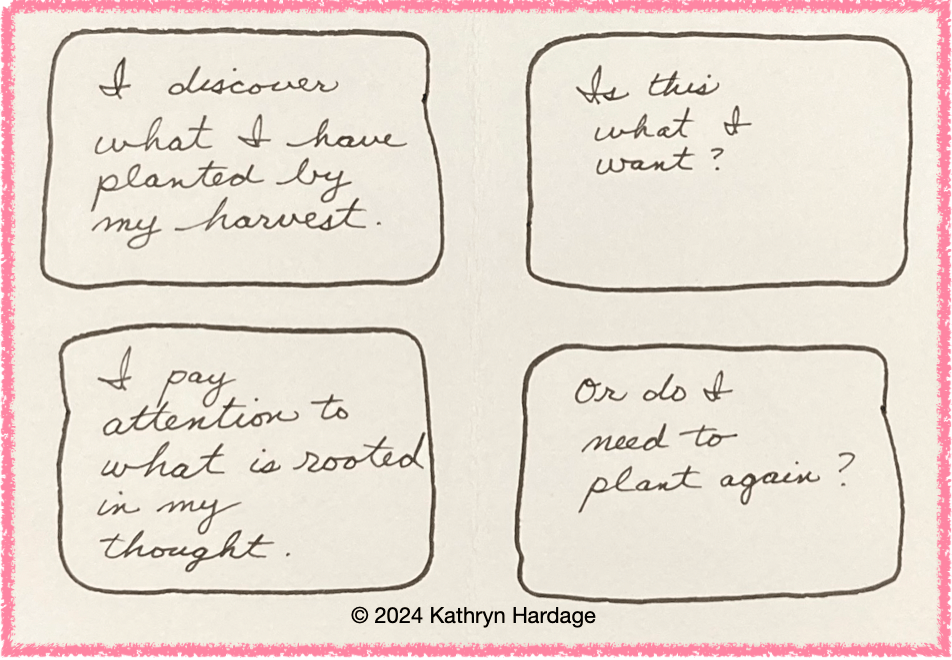 I discover
what I have
planted by
my harvest.
Is this
what I
want?
I pay
attention to
what is rooted
in my
thought.
Or do I
need to
plant again?
© 2024 Kathryn Hardage